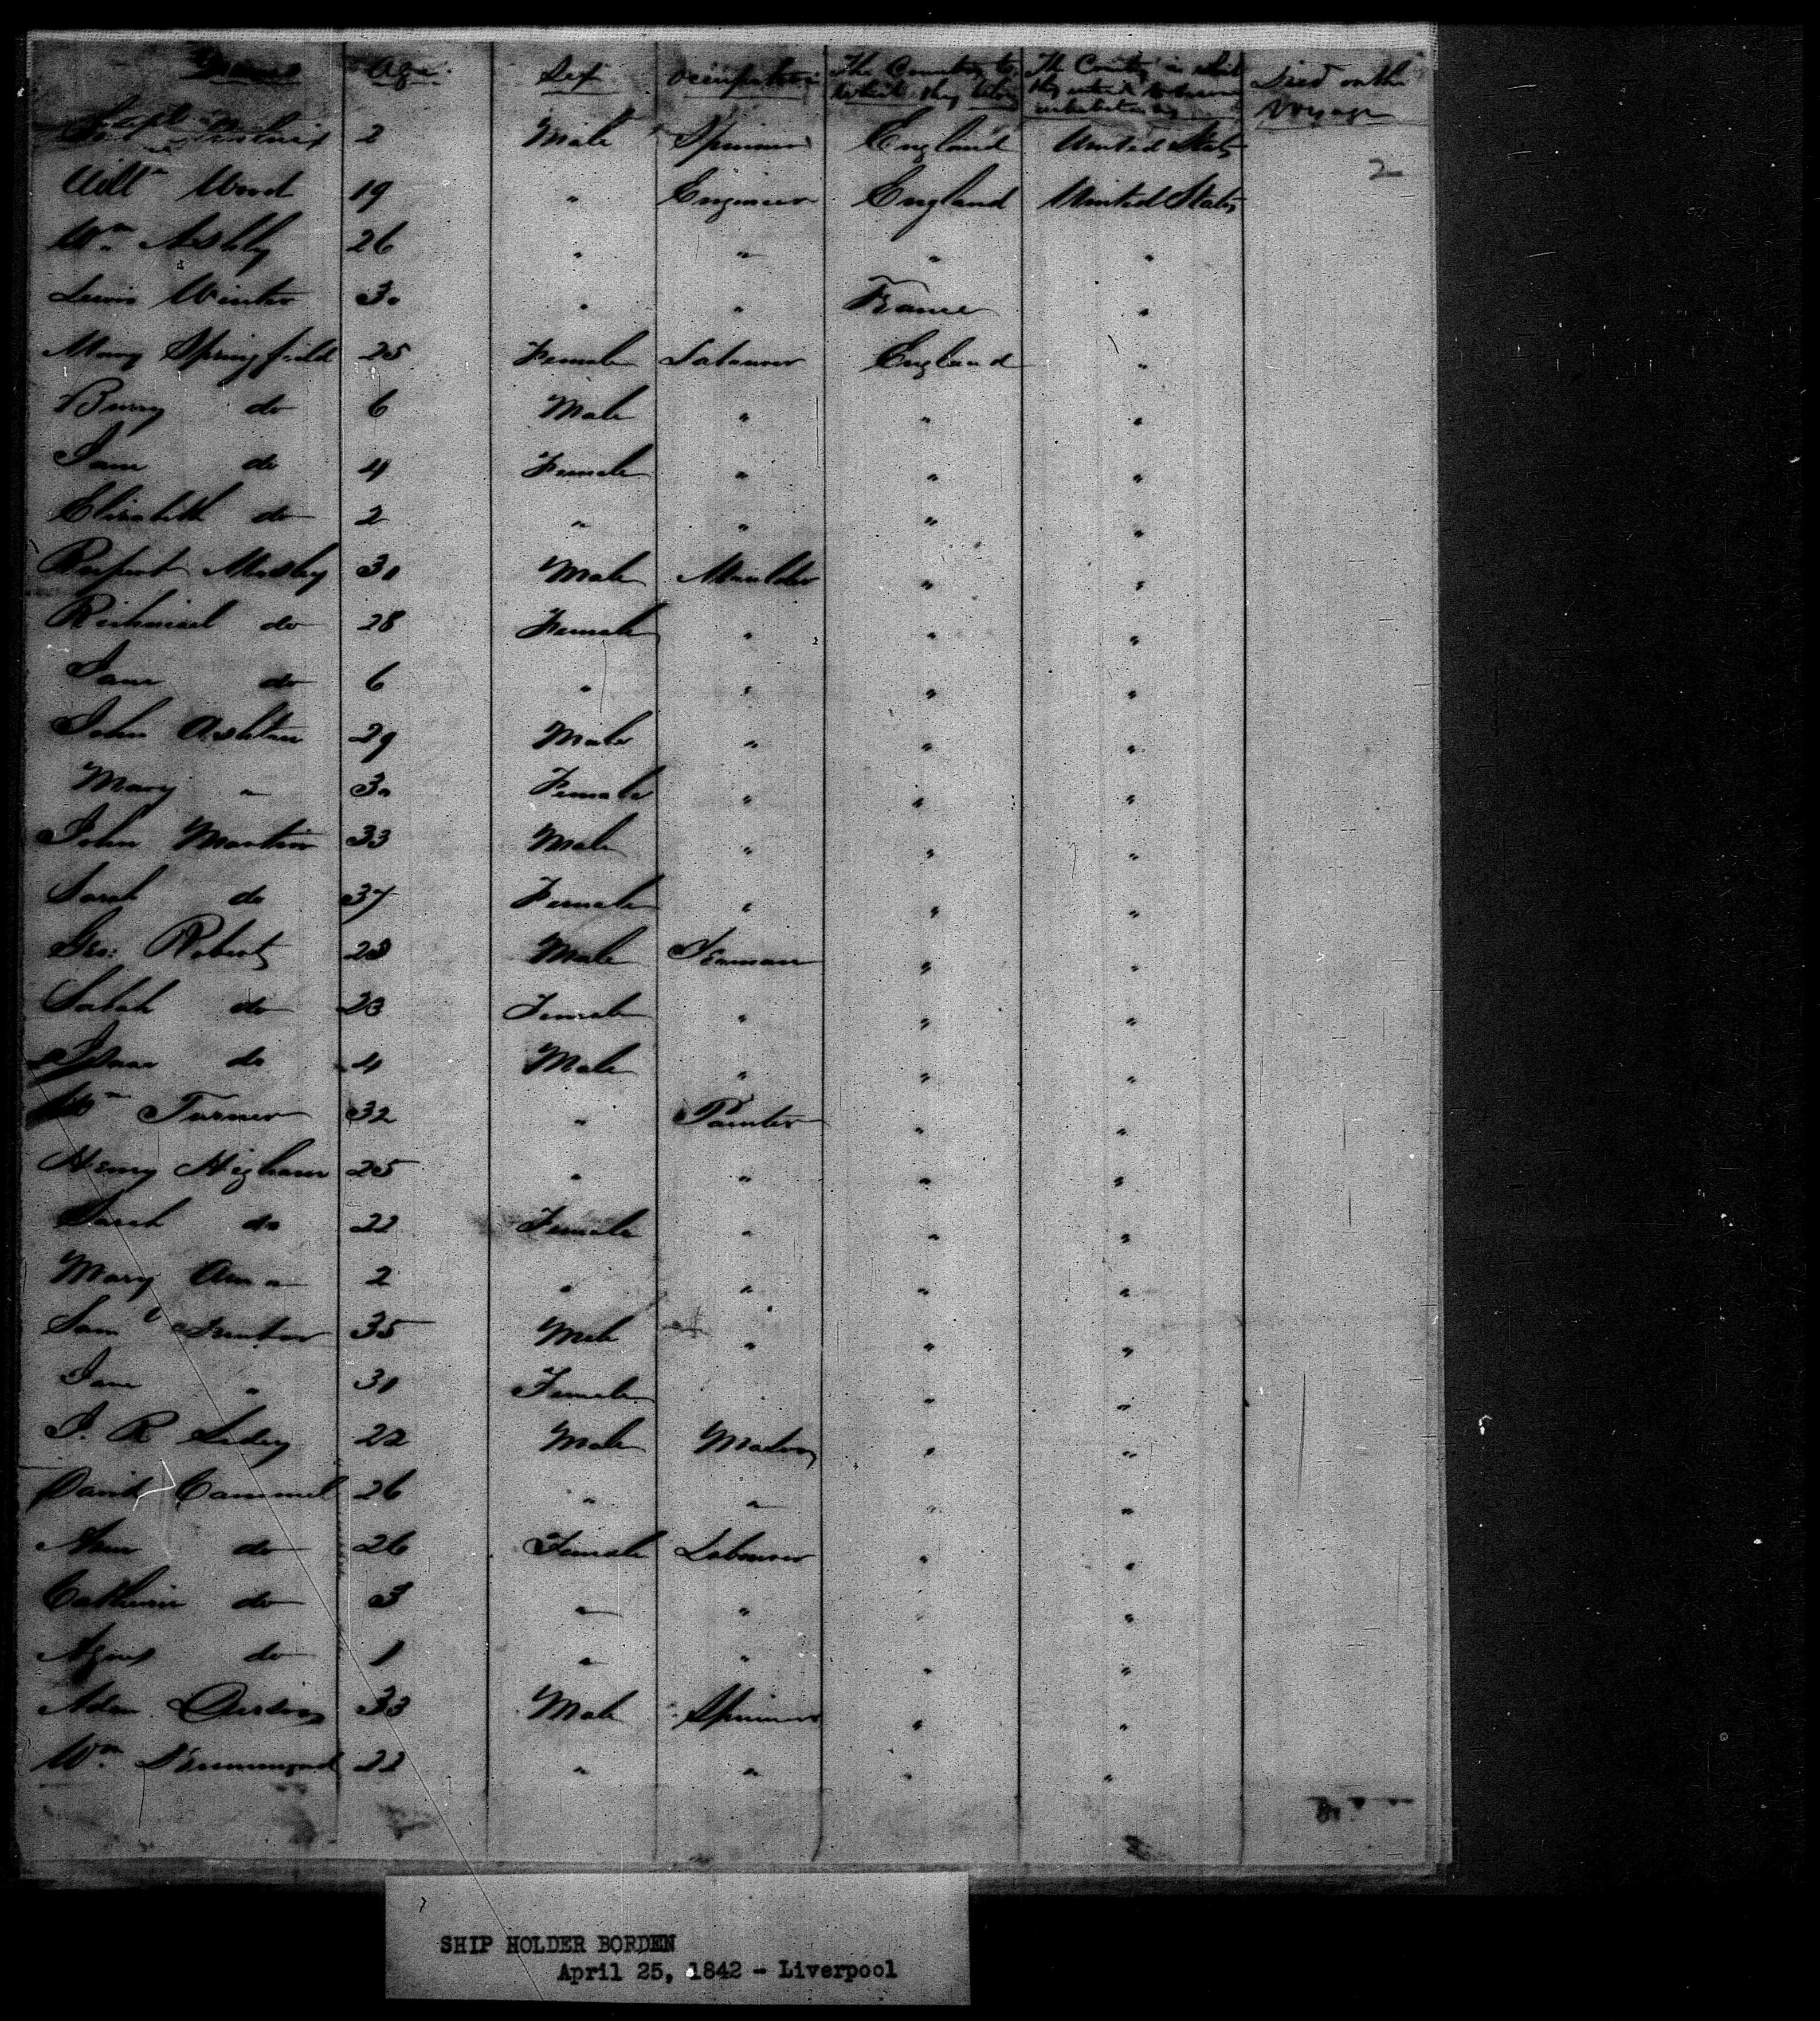 Names Age Sex Occupation The Country to which they belong The Country in which they intend to become inhabitants Died on the Voyage
2 Male Spinner England United States
2
Willm Wood 19 " Engineer England United States
Wm Ashly 26 " " " "
Lewis Winter 30 " " France "
Mary Springfield 25 Female Labourer England "
do 6 Male " " "
Jane do 4 Female " " "
Elizabeth do 2 " " " "
Mosley 31 Male Moulder " "
do 28 Female " " "
Jane do 6 " " " "
John Ashton 29 Male " " "
Mary " 30 Female " " "
John Martin 33 Male " " "
Sarah do 37 Female " " "
Geo: Roberts 23 Male " "
Sarah do 23 Female " " "
do 4 Male " " "
Wm Turner 32 " Painter " "
Henry Higham 25 " " " "
Sarah do 22 Female " " "
Mary Ann " 2 " " " "
Saml 35 Male " " "
Jane " 30 Female " "
J. R 22 Male " "
David Cammel 26 " " " "
Ann do 26 Female Labourer " "
Catherine do 3 " " " "
Agnes do 1 " " " "
Adam 33 Male Spinner " "
Wm Drummond 22 " " " "
SHIP HOLDER BORDEN
April 25, 1842 - Liverpool